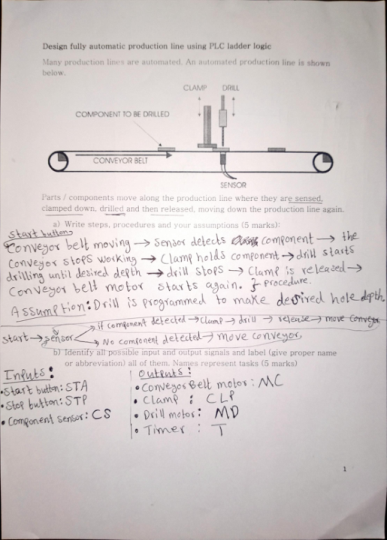 Design fully automatic production line using PLC ladder logic
Many production lines are automated. An automated production line is shown
below.
CLAMP DRILL
COMPONENT TO BE DRILLED
CONVEYOR BELT
SENSOR
Parts / components move along the production line where they are sensed,
clamped down, drilled and then released, moving down the production line again.
a) Write steps, procedures and your assumptions (5 marks):
Start button
Conveyor belt moving → Sensor detects component → the
Conveyor stops working → Clamp holds component → drill starts
drilling until desired depth → drill stops → Clamp is released →
Conveyor belt motor starts again. } procedure.
Assumption: Drill is programmed to make desired hole depth
If component detected → Clamp → drill → release → move Conveyor
Start → Sensor
No component detected → move conveyor
b) Identify all possible input and output signals and label (give proper name
or abbreviation) all of them. Names represent tasks (5 marks)
Inputs:
• Start button: STA
• Stop button: STP
• Component sensor: CS
Outputs:
• Conveyor Belt motor: MC
• Clamp : CLP
• Drill motor: MD
• Timer : T
1